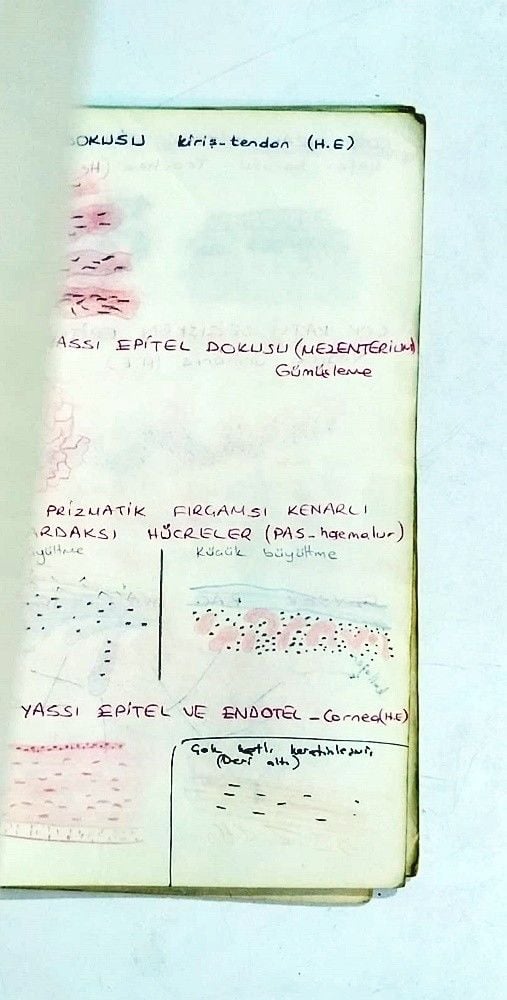 DOKUSU kiriş-tendon (H.E)
ASSI EPİTEL DOKUSU (MEZENTERIUM)
Gümüşleme
PRİZMATİK FIRÇAMSI KENARLI
ARDAKSI HÜCRELER (PAS-haemalun)
yültme Küçük büyültme
YASSI EPİTEL VE ENDOTEL - Cornea (H.E)
Çok katlı keratinleşmiş
(Deri altı)